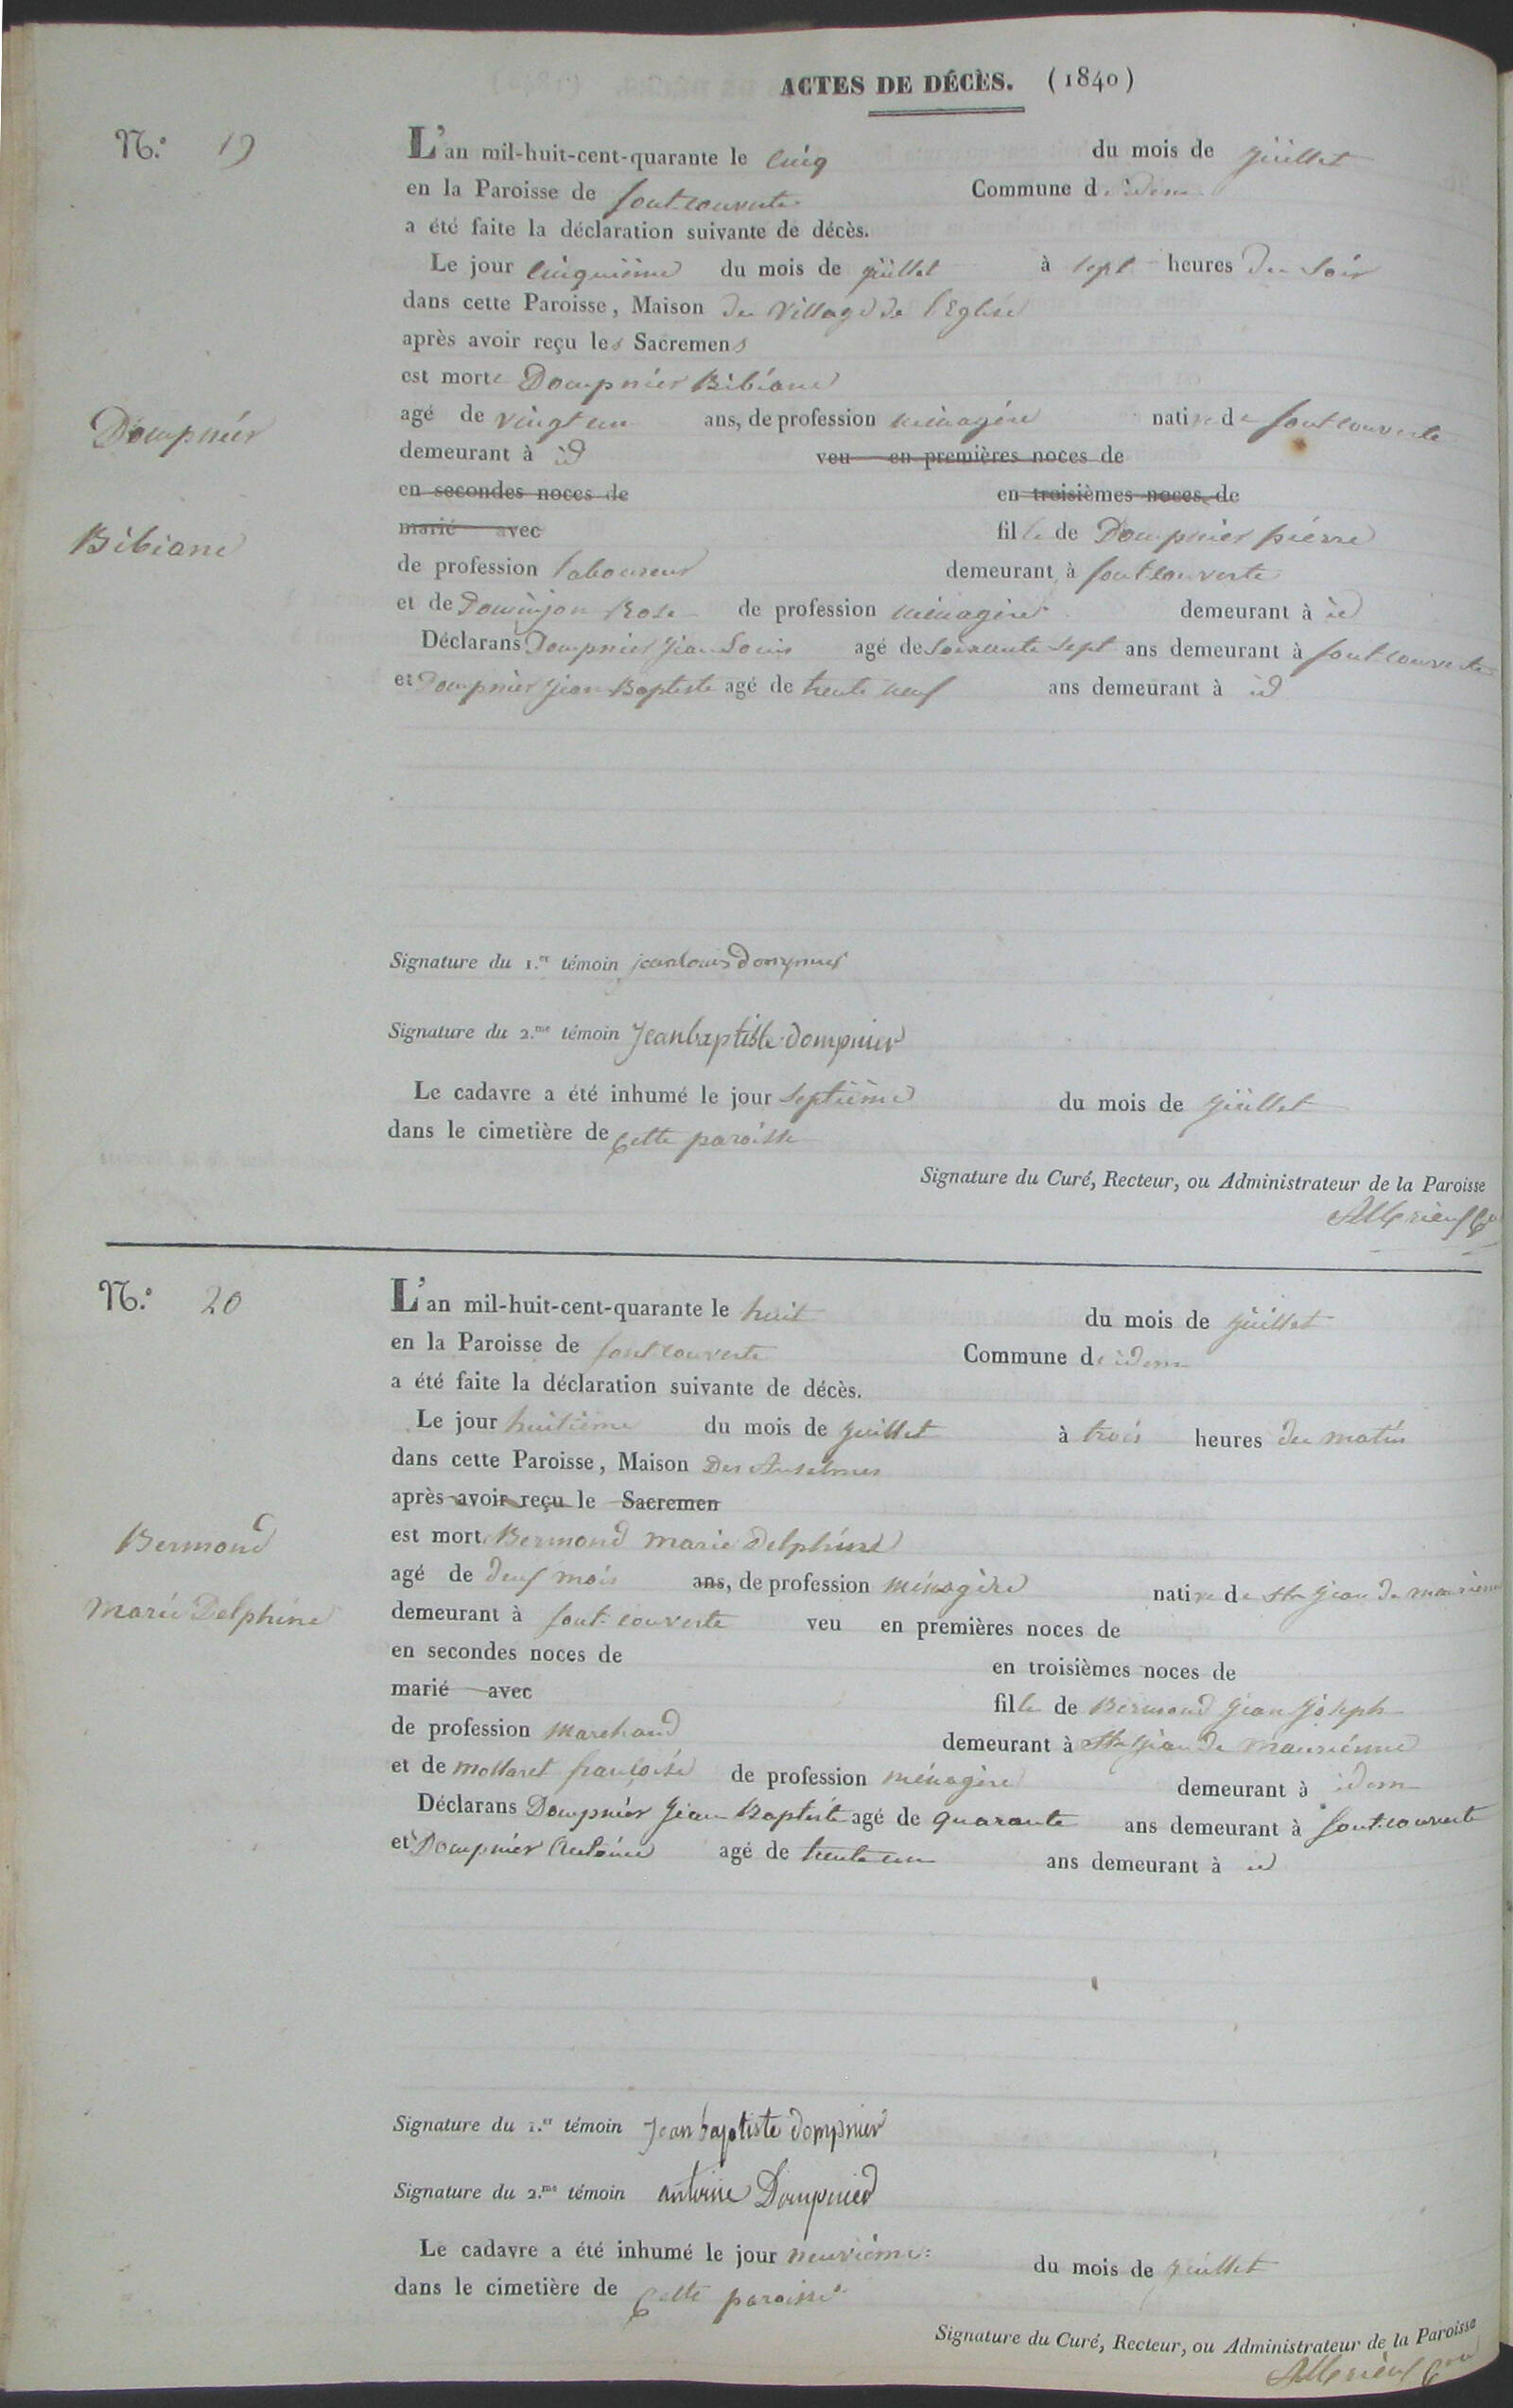 ACTES DE DÉCÈS. (1840)
N.º 19
L'an mil-huit-cent-quarante le cinq du mois de juillet
en la Paroisse de fontcouverte Commune de idem
a été faite la déclaration suivante de décès.
Le jour cinquième du mois de juillet à sept heures du soir
dans cette Paroisse, Maison du village de l'Eglise
après avoir reçu les Sacremens
est morte Dompnier Bibiane
Dompnier
agé de vingt un ans, de profession ménagère native de fontcouverte
demeurant à id veu en premières noces de
en secondes noces de en troisièmes noces de
Bibiane
marié avec fille de Dompnier pierre
de profession laboureur demeurant à fontcouverte
et de Dominjon Rose de profession ménagère demeurant à id
Déclarans Dompnier Jean Louis agé de soixante sept ans demeurant à fontcouverte
et Dompnier Jean Baptiste agé de trente neuf ans demeurant à id
Signature du 1.er témoin jeanlouis dompnier
Signature du 2.me témoin Jeanbaptiste dompnier
Le cadavre a été inhumé le jour septième du mois de juillet
dans le cimetière de cette paroisse
Signature du Curé, Recteur, ou Administrateur de la Paroisse
N.º 20
L'an mil-huit-cent-quarante le huit du mois de juillet
en la Paroisse de fontcouverte Commune de idem
a été faite la déclaration suivante de décès.
Le jour huitième du mois de juillet à trois heures du matin
dans cette Paroisse, Maison Des Anselmes
après avoir reçu le Sacremen
est mort Bermond marie Delphine
Bermond
agé de deux mois ans, de profession ménagère native de St Jean de maurienne
Marie Delphine
demeurant à fontcouverte veu en premières noces de
en secondes noces de en troisièmes noces de
marié avec fille de Bermond Jean Joseph
de profession marchand demeurant à St Jean de maurienne
et de mollaret françoise de profession ménagère demeurant à idem
Déclarans Dompnier Jean Baptiste agé de quarante ans demeurant à fontcouverte
et Dompnier Antoine agé de trente un ans demeurant à id
Signature du 1.er témoin Jean baptiste dompnier
Signature du 2.me témoin antoine Dompnier
Le cadavre a été inhumé le jour neuvième du mois de juillet
dans le cimetière de cette paroisse
Signature du Curé, Recteur, ou Administrateur de la Paroisse